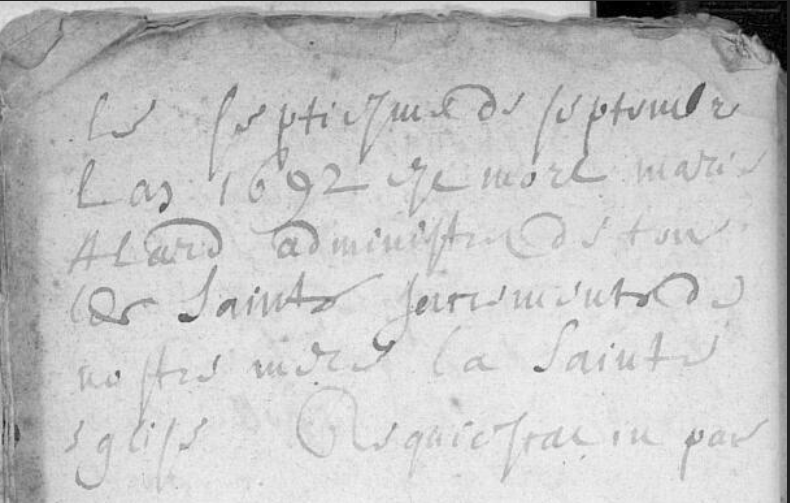 le septiesme de septembre
lan 1692 est mort marie
Alard administree de tous
les Saints sacrements de
nostre mere la Sainte
eglise Requiescat in pace